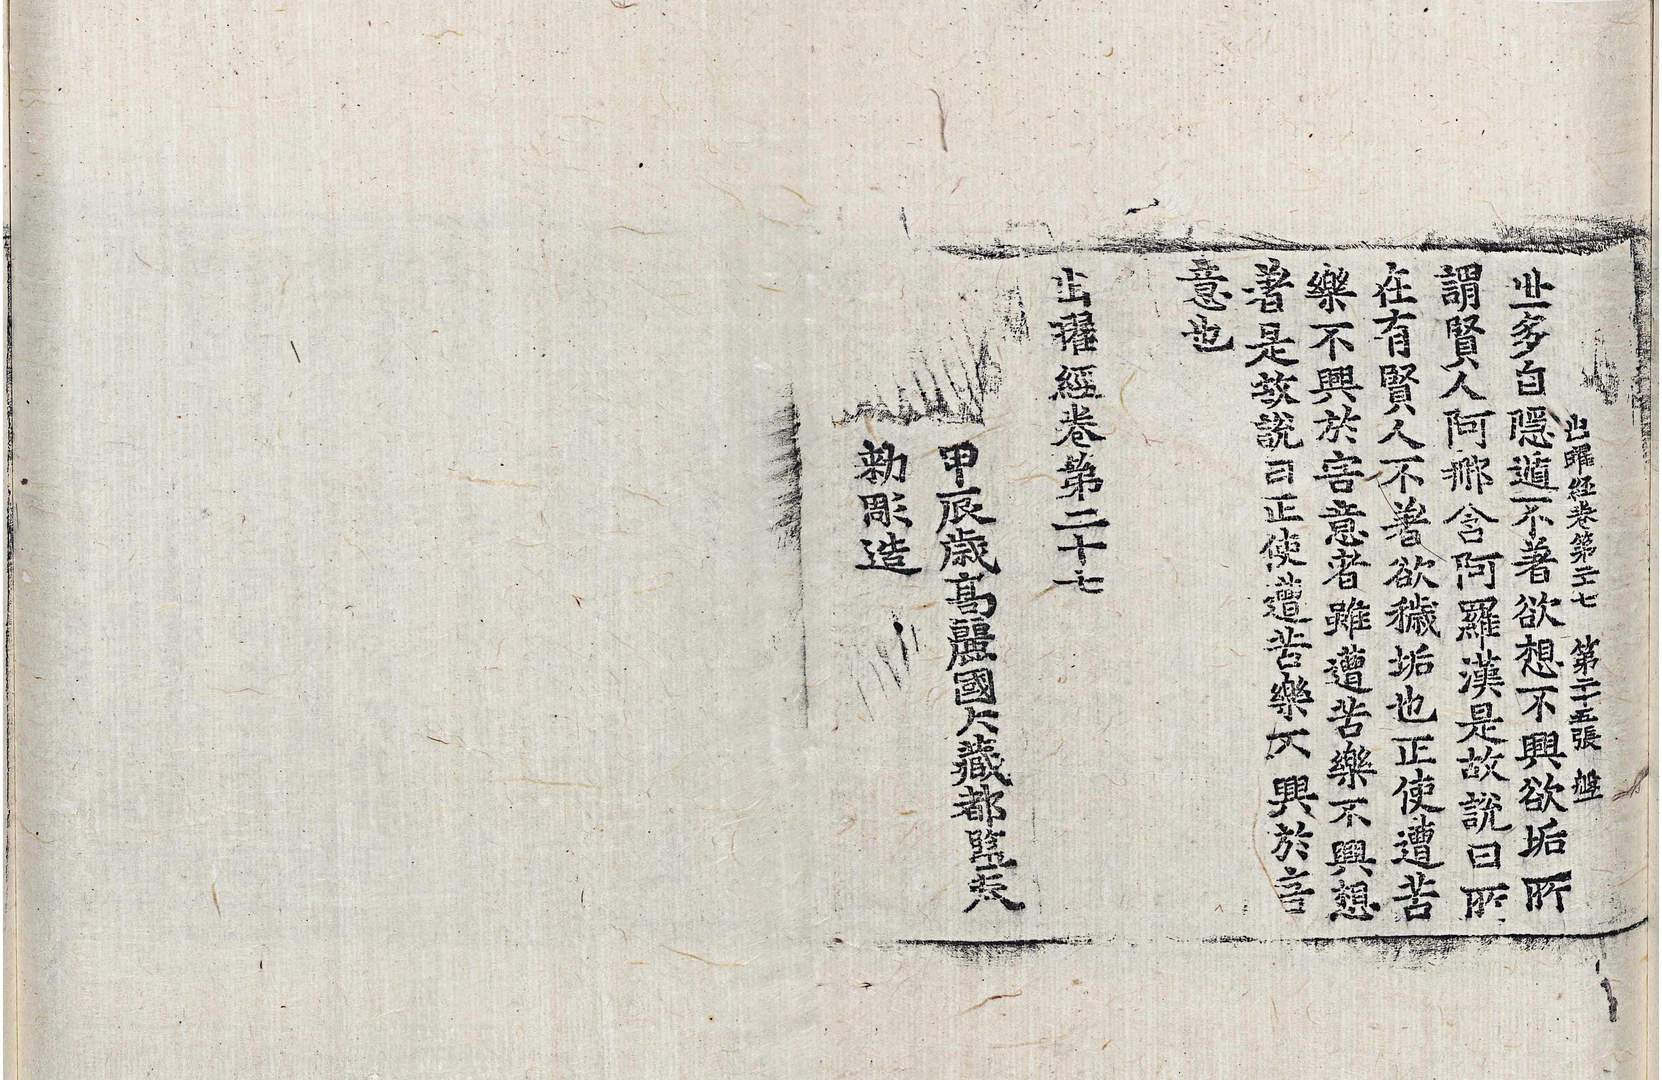 出曜經卷第二十七 第二十五張 盤
世多自隱遁不著欲想不興欲垢所
謂賢人阿那含阿羅漢是故說曰所
在有賢人不著欲穢垢也正使遭苦
樂不興於害意者雖遭苦樂不興想
著是故說曰正使遭苦樂不興於害
意也
出曜經卷第二十七
甲辰歲高麗國大藏都監奉
勅彫造